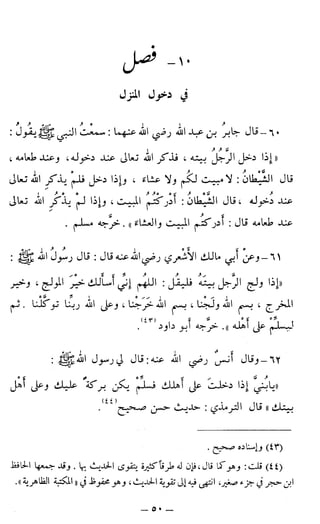 ١٠ - فصل
في دخول المنزل
٦٠ - قال جابرُ بن عبد الله رضي الله عنهما : سمعْتُ النبي ﷺ يقُولُ :
« إذا دخل الرَّجُلُ بيته ، فذكر الله تعالى عند دخوله، وعند طعامه ،
قال الشَّيْطانُ : لا مبيت لكُم ولا عشاء ، وإذا دخل فلمْ يذكر الله تعالى
عند دُخوله ، قال الشَّيْطانُ : أدركتُمُ المبيت ، وإذا لمْ يذْكُرِ الله تعالى
عند طعامه قال : أدركتُم المبيت والعشاء » . خرَّجه مسلم .
٦١ - وعن أبي مالك الأشعري رضي الله عنه قال : قال رسُولُ الله ﷺ :
« إذا ولج الرَّجل بيتَهُ فليقُل : اللهُم إنّي أسألك خيْرَ المولج ، وخير
المخرج ، بسم الله ولجْنا ، بسم الله خَرَجنا ، وعلى الله ربِّنا توكَّلْنا . ثم
ليسلِّمْ على أهْله » . خرَّجه أبو داود (٤٣) .
٦٢ - وقال أنسٌ رضي الله عنه : قال لي رسول الله ﷺ :
« يابُنيَّ إذا دخلتَ على أهلك فسلِّمْ يكن بركةً عليك وعلى أهْل
بيتك » قال الترمذي : حديث حسن صحيح (٤٤) .
(٤٣) وإسناده صحيح .
(٤٤) قلت : وهو كما قال ، فإن له طرقاً كثيرة يتقوى الحديث بها . وقد جمعها الحافظ
ابن حجر في جزء صغير ، انتهى فيه إلى تقوية الحديث ، وهو محفوظ في « المكتبة الظاهرية » .
- ٥٠ -